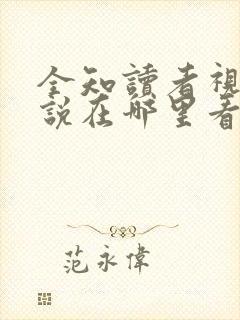 全知讀者視
說在哪里看
范永偉